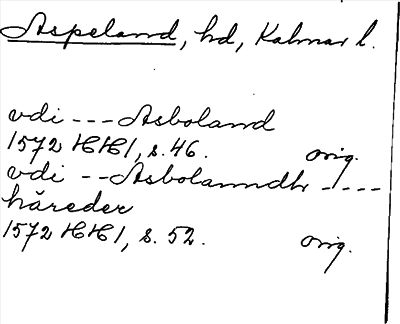 Aspeland, hd, Kalmar l.
vdi --- Asboland
1572 HH1, s. 46. orig.
vdi -- Asbolanndh ----
häreder
1572 HH1, s. 52. orig.